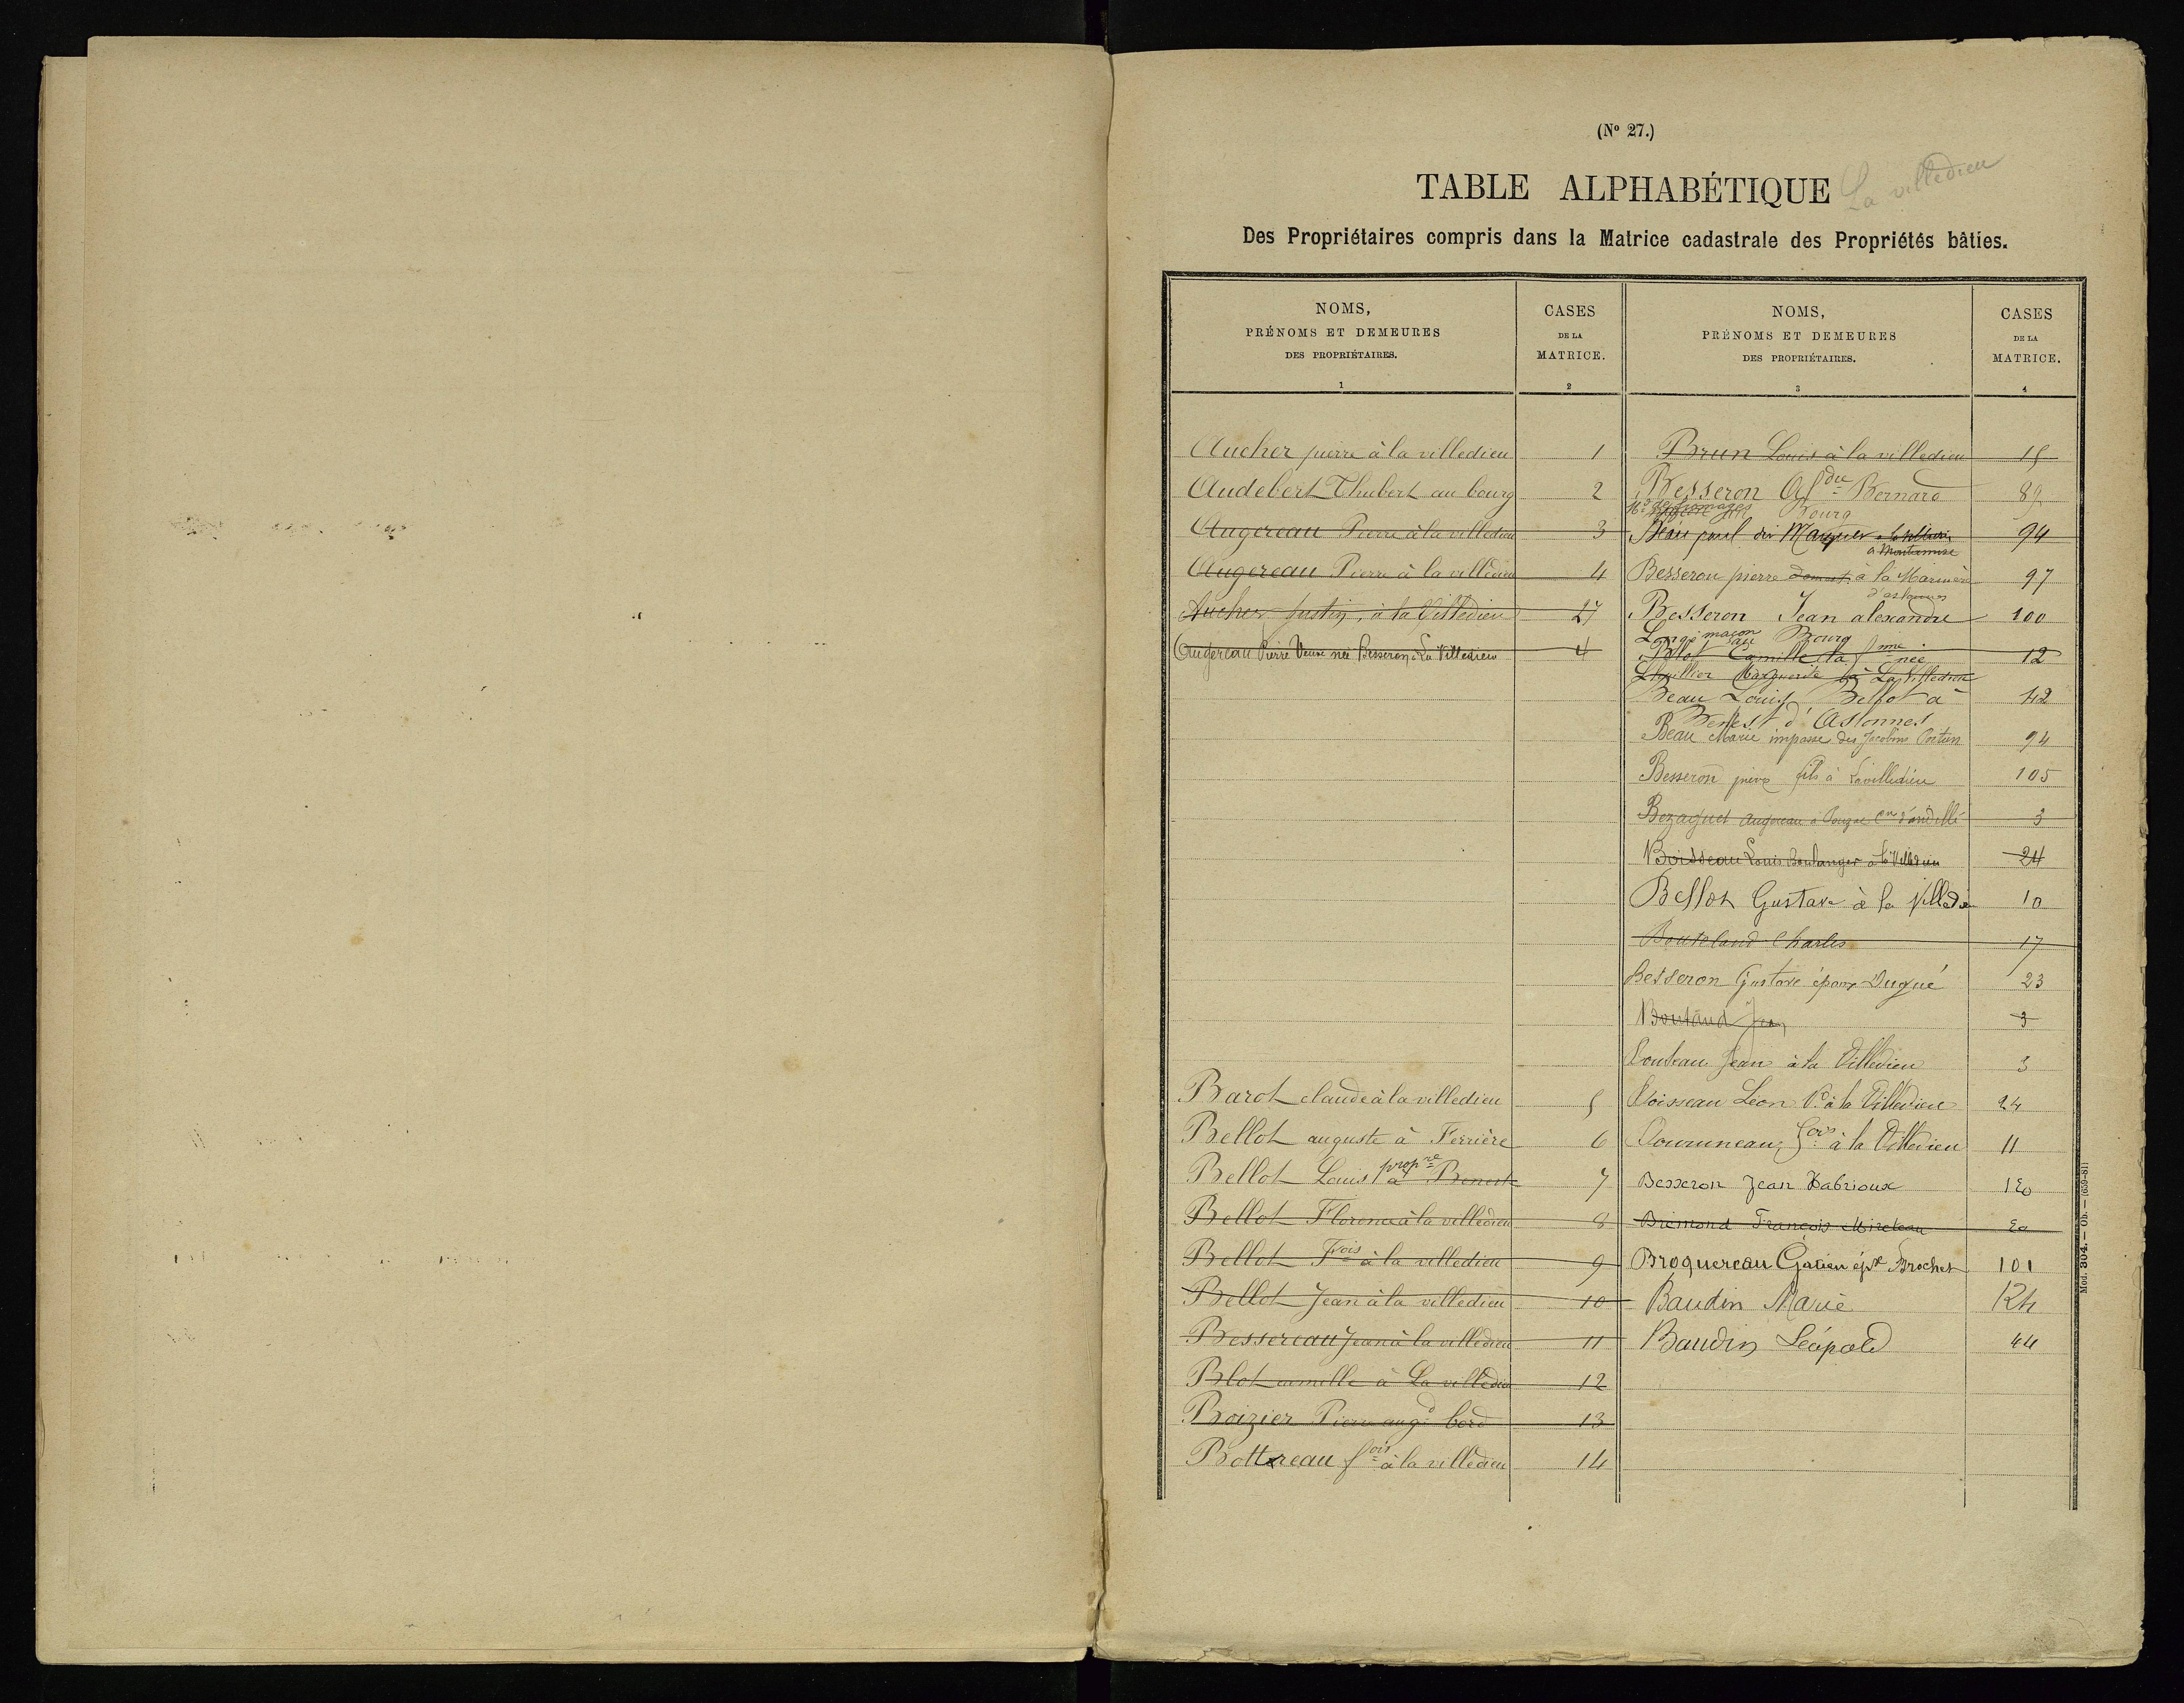 (Nº 27.)
TABLE ALPHABÉTIQUE La villedieu
Des Propriétaires compris dans la Matrice cadastrale des Propriétés bâties.
NOMS,
PRÉNOMS ET DEMEURES
DES PROPRIÉTAIRES.
1
CASES
DE LA
MATRICE.
2
Aucher pierre à la villedieu 1
Audebert Thubert au bourg 2
Augereau Pierre à la villedieu 3
Augereau Pierre à la villedieu 4
Aucher Justin, à la Villedieu 27
Augereau Pierre Veuve née Besseron à La Villedieu 4
Barot claude à la villedieu 5
Bellot auguste à Ferrière 6
Bellot Louis propre à Benest 7
Bellot Florence à la villedieu 8
Bellot Fois à la villedieu 9
Bellot Jean à la villedieu 10
Bessereau Jean à la villedieu 11
Blot camille à La villedieu 12
Boizier Pierre augd bord 13
Bottreau fois à la villedieu 14
NOMS,
PRÉNOMS ET DEMEURES
DES PROPRIÉTAIRES.
3
CASES
DE LA
MATRICE.
4
Brun Louis à la villedieu 15
Besseron Bernard 89
Md de fromages Bourg
Beau paul à la villedieu 94
Besseron pierre à la Marinière 97
Besseron Jean alexandre 100
maçon au Bourg
Blot Camille la fme née 12
Lhuillier Marguerite à La Villedieu
Beau Louis Bellot à 42
Benest d'Aslonnes
Beau Marie impasse des Jacobins 94
Besseron pierre fils à Lavilledieu 105
Bezaguet augereau à 3
Boisseau Louis Boulanger à la Villedieu 24
Bellot Gustave à la Villedieu 10
Charles 17
Besseron Gustave époux Dugué 23
Boutaud Jean 3
Bouteau Jean à la Villedieu 3
Boisseau Léon à la Villedieu 24
fois à la Villedieu 11
Besseron Jean Habrioux 120
Brémond François Mireleau 20
Broquereau Gatien épx Brochet 101
Baudin Marie
Baudin Léopold 44
Mod. 304. — Ob. — (659-81)